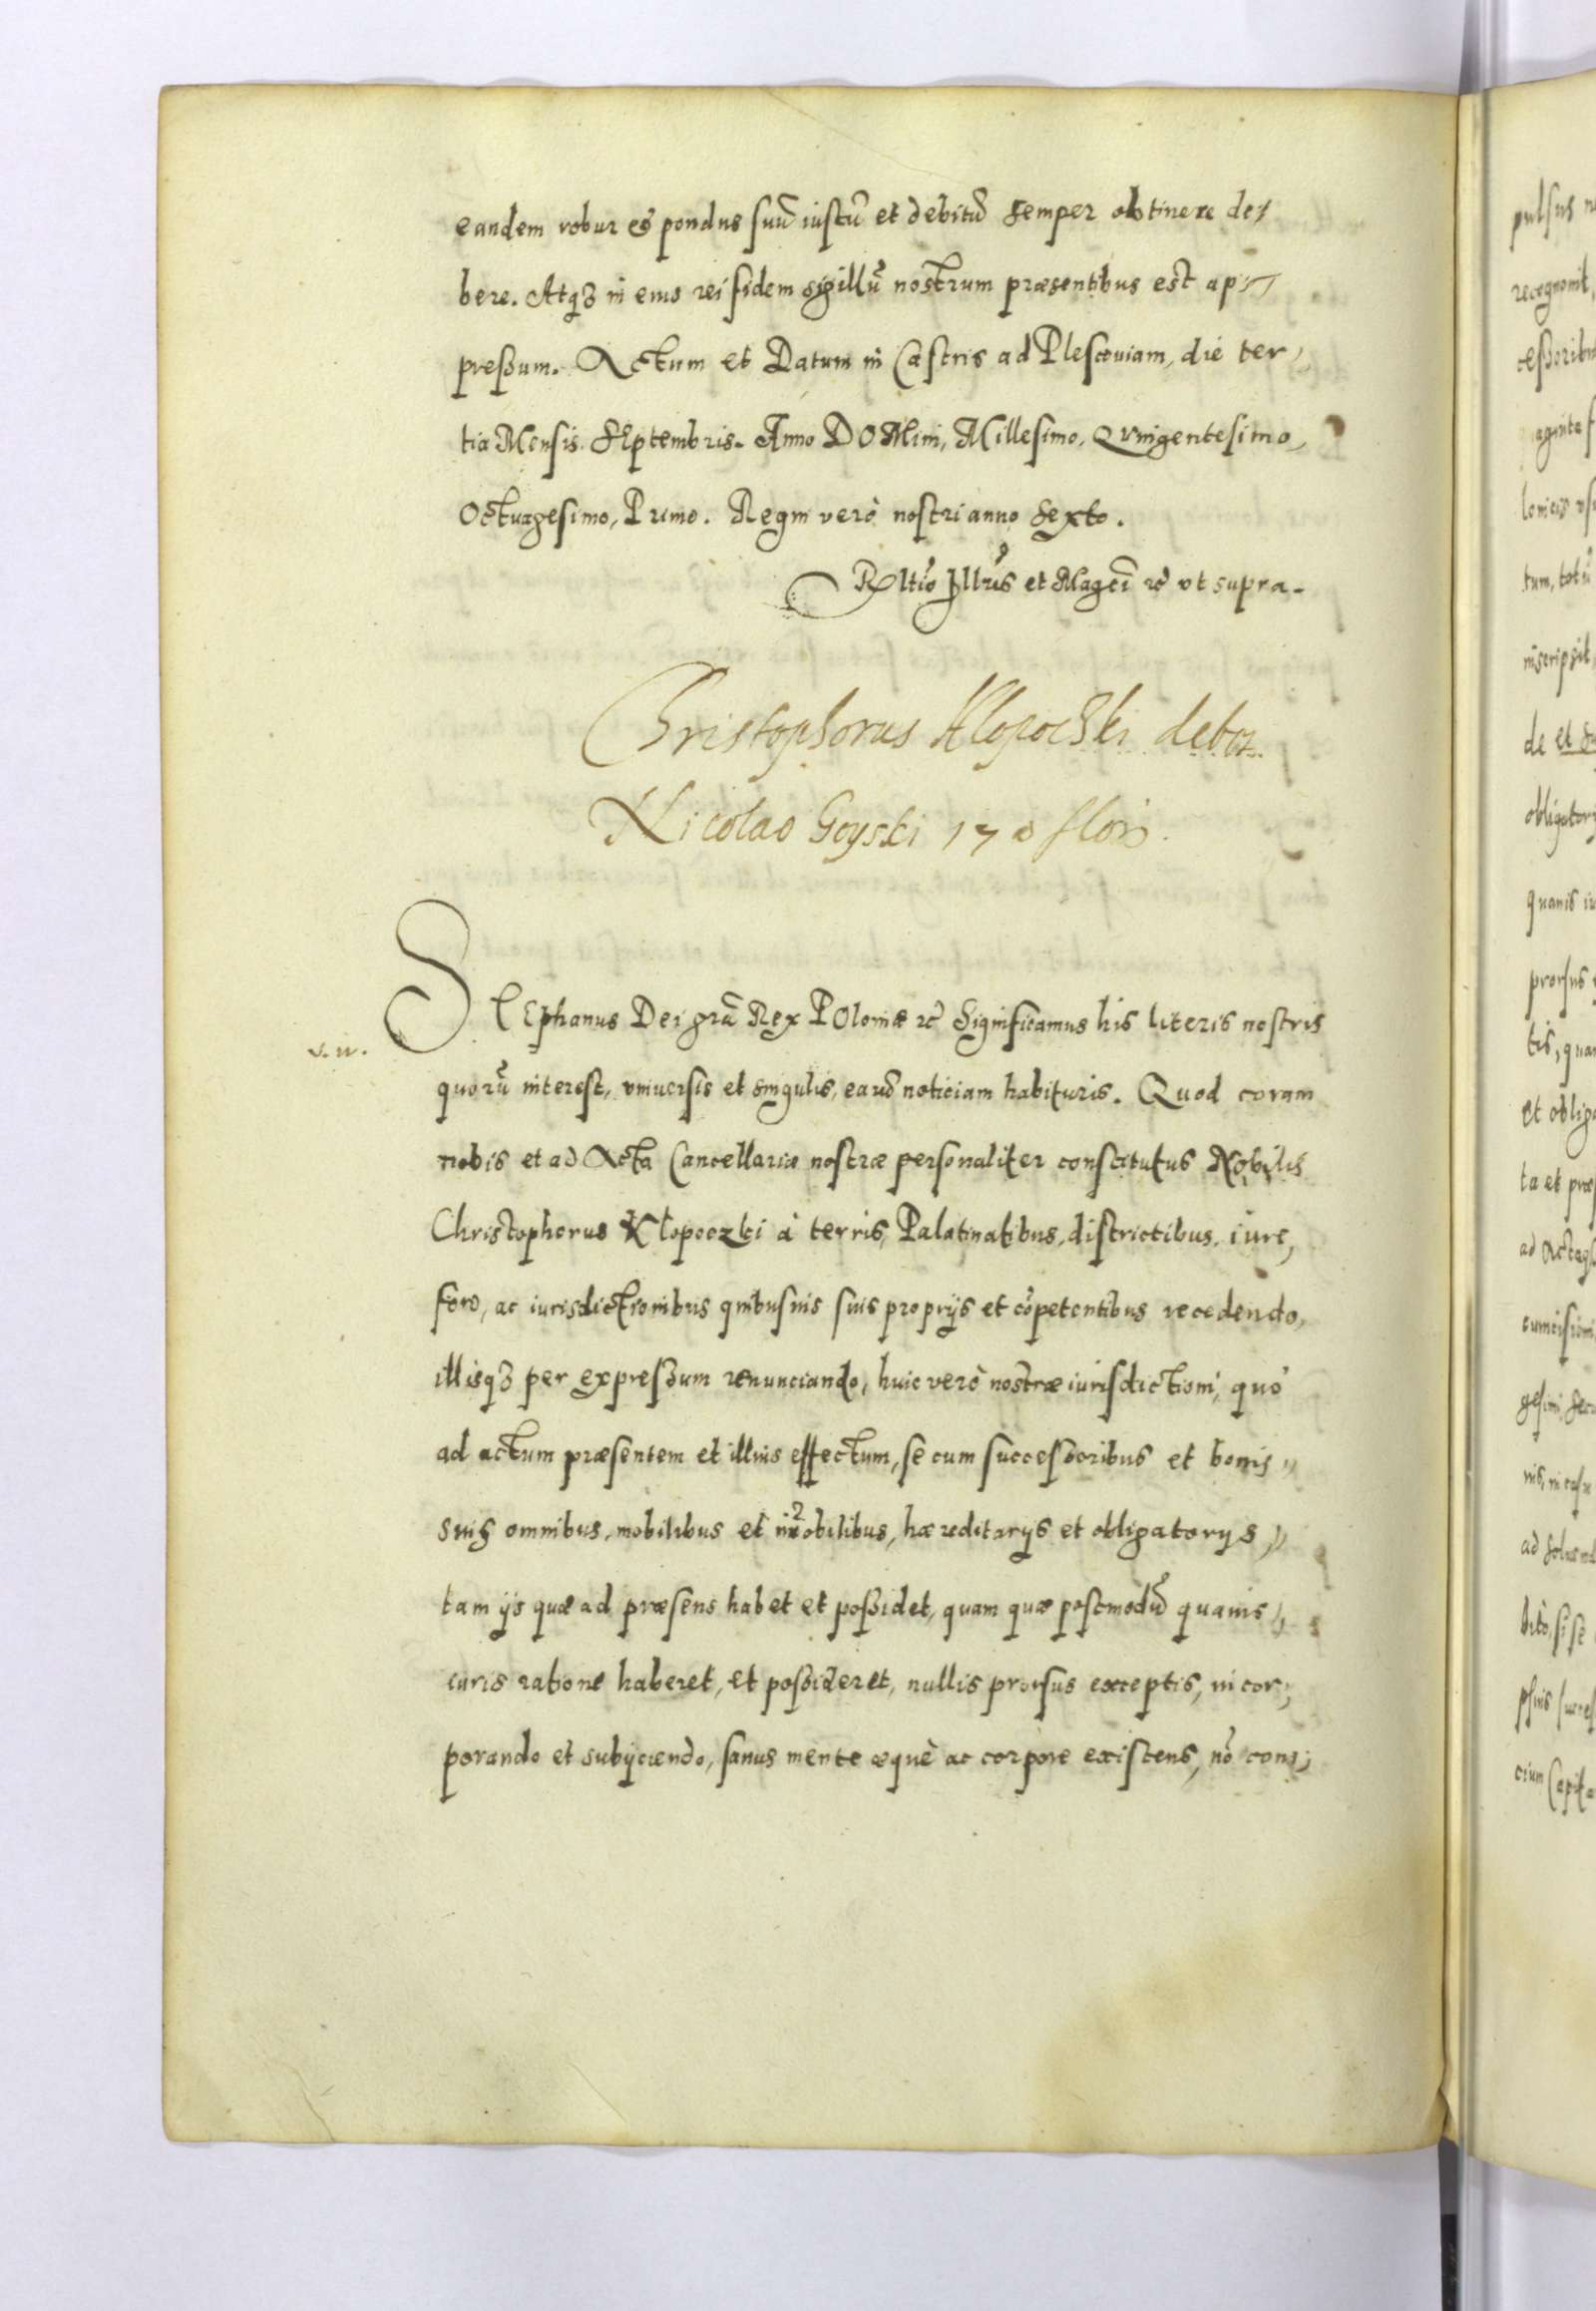 eandem robur et pondus suũ iustũ et debitũ semper obtinere de/
bere. Atqȝ in eius rei fidem sigillũ nostrum præsentibus est ap
preßum. Actum et Datum in Castris ad Plescouiam, die ter,
tia Mensis. SEptembris. Anno DOMini, Millesimo, Qvingentesimo,
Octuagesimo, Primo. Regni verò nostri anno sexto.
Rltĩo Illrĩs et Magcĩ rc̃ vt supra.
Christophorus Klopocski debet
Nicolao Goyski 170 flor.
STEphanus Dei grã Rex POloniæ rc̃ Significamus his literis nostris
v. n.
quorũ interest, vniuersis et singulis, earũ noticiam habituris. Quod coram
nobis et ad Acta Cancellariæ nostræ personaliter constitutus Nobilis
Christophorus Klopoczki à terris, Palatinatibus, districtibus, iure,
foro, ac iurisdictionibus quibusuis suis proprijs et cõpetentibus recedendo,
illisqȝ per expreßum renunciando, huic verò nostræ iurisdictioni, quo
ad actum præsentem et illius effectum, se cum succeßoribus et bonis
suis omnibus, mobilibus et im̃obilibus, hæreditarijs et obligatorijs,
tam ijs quæ ad præsens habet et poßidet, quam quæ postmodũ quauis,
iuris ratione haberet, et poßideret, nullis prorsus exceptis, incor,
porando et subijciendo, sanus mente æquè ac corpore existens, nõ com,